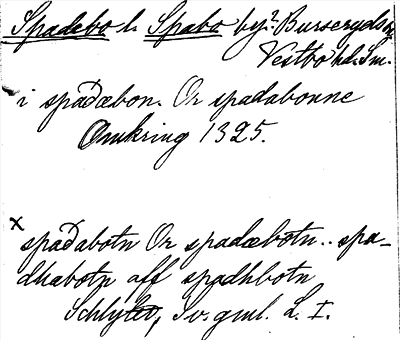 Spadebo l. Spabo by? Burseryds sn
Vestbo hd. Sm.
i spađæbon. Or spadabonne
Omkring 1325.
x
spađabotn Or spadæbotn.. spa-
dhabotn aff spadhbotn
Schlyter, Sv. gml. L. I.